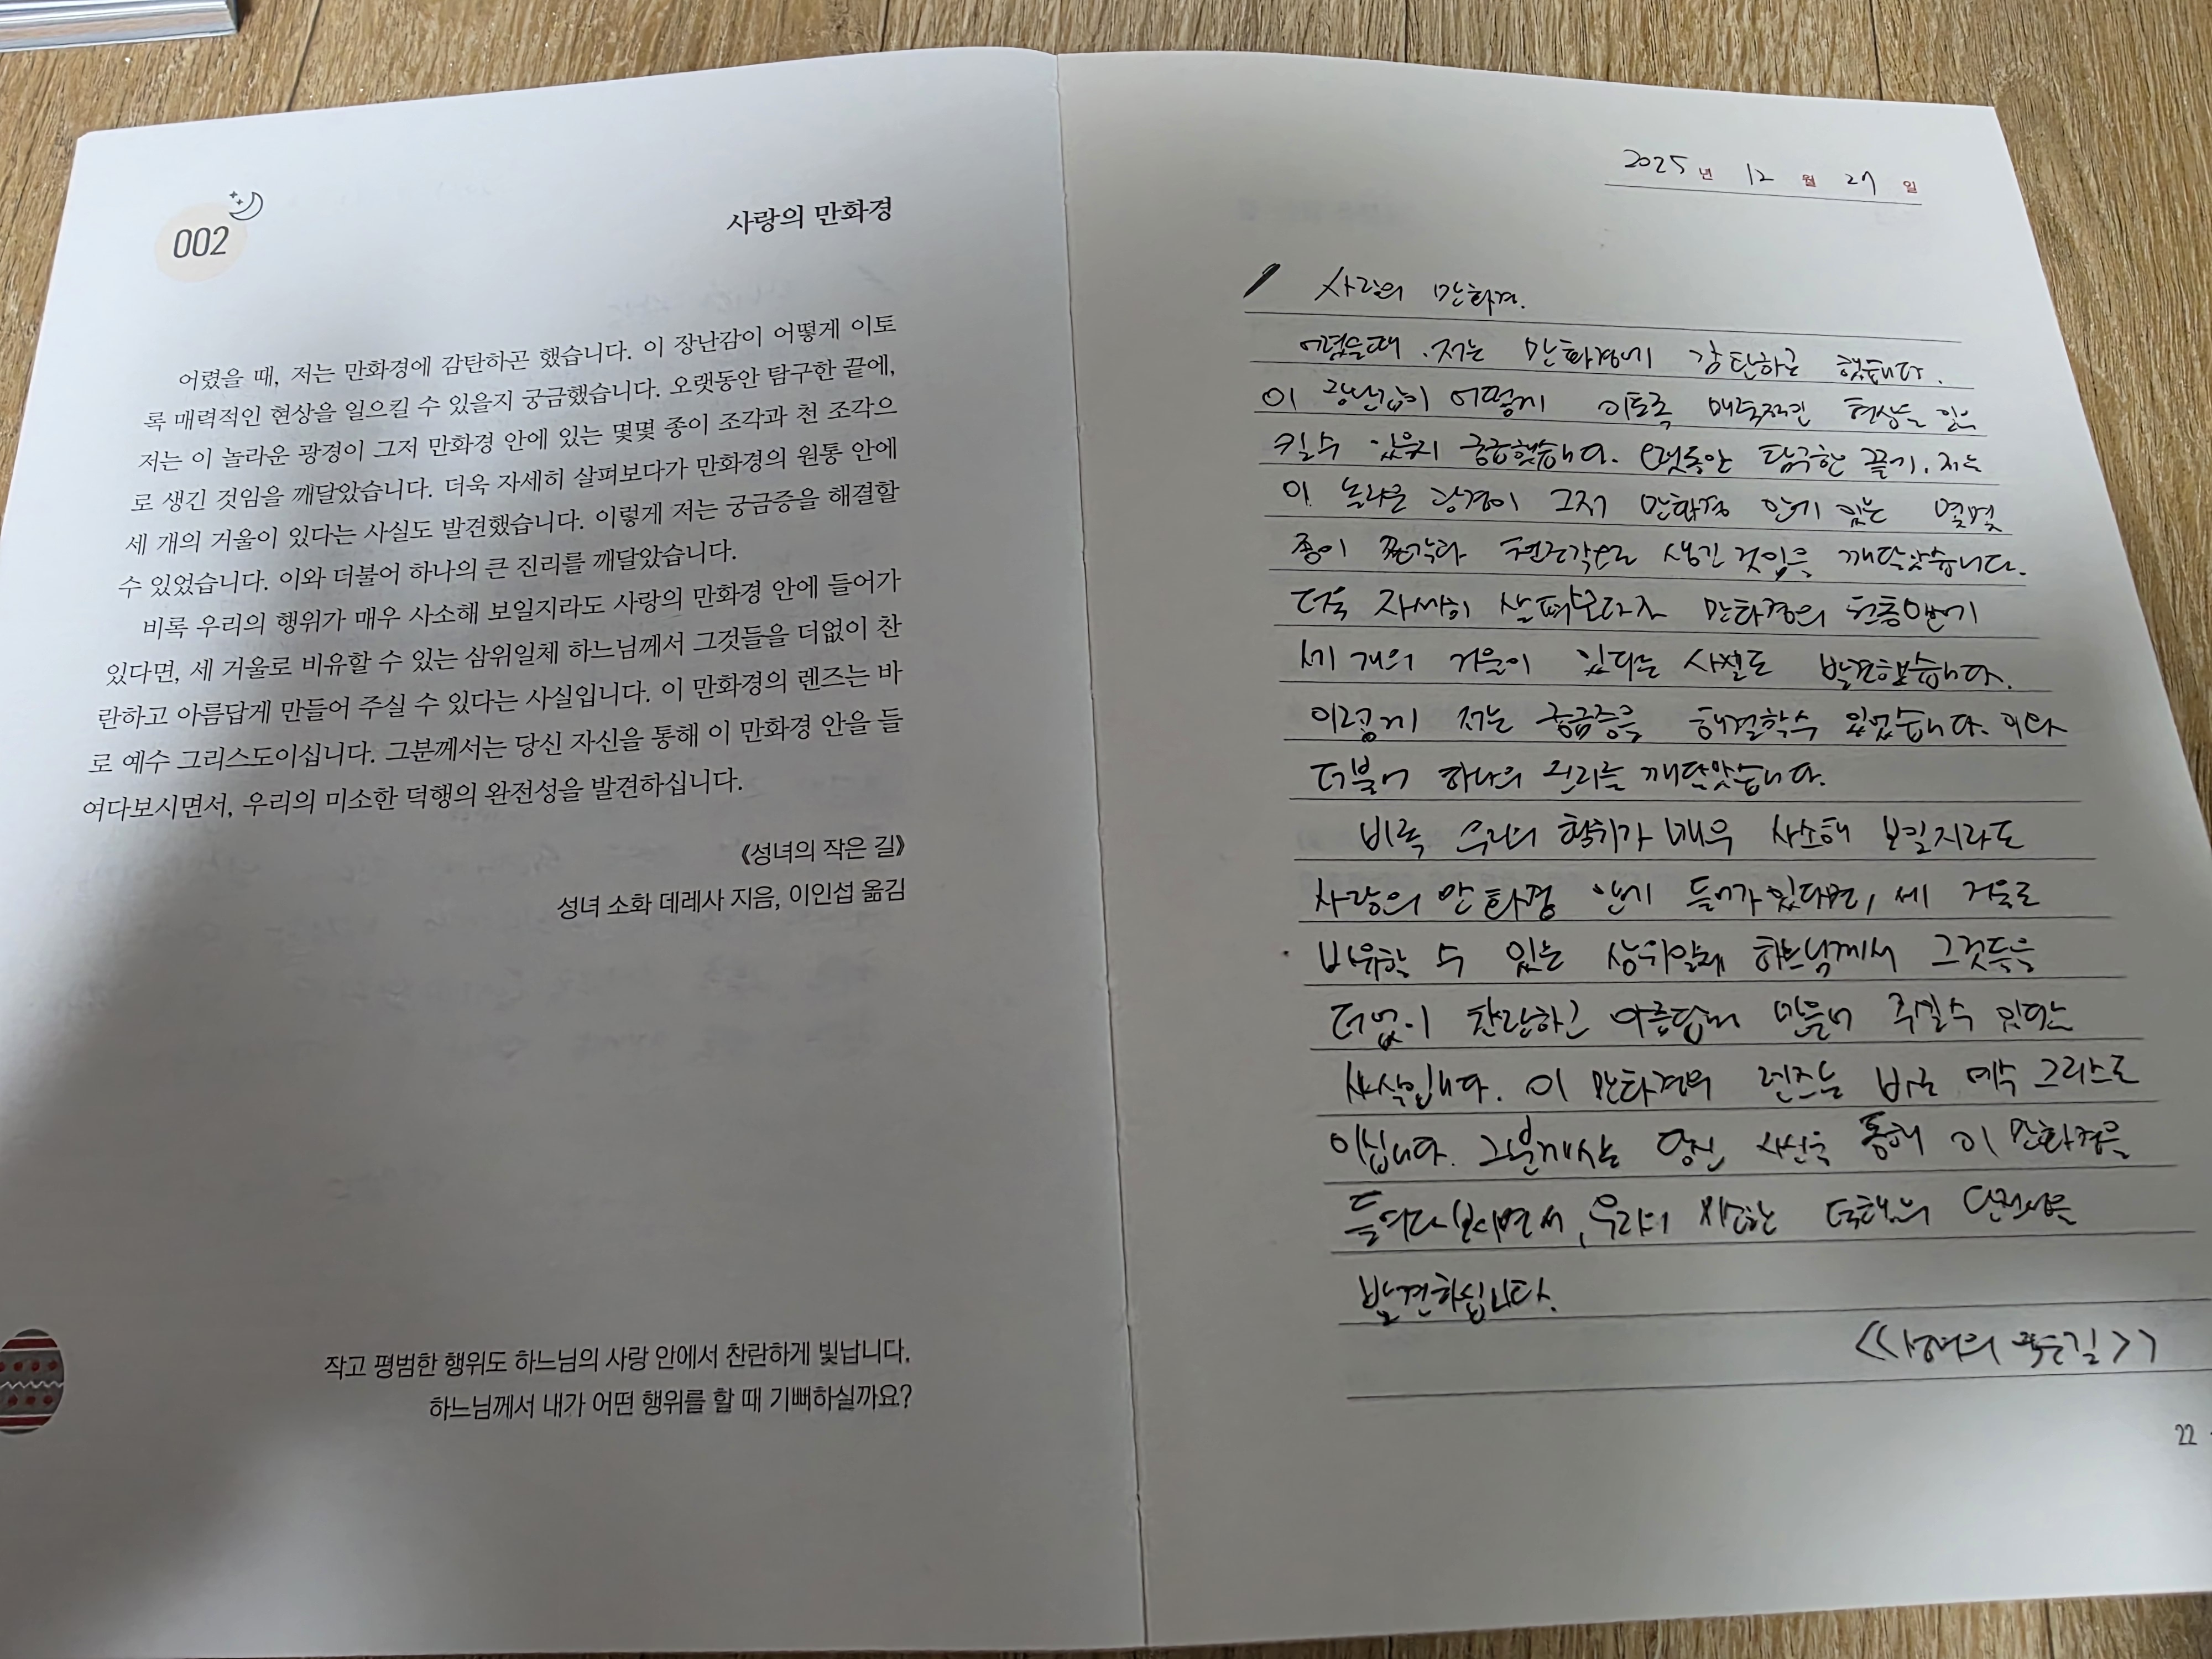 002
사랑의 만화경
어렸을 때, 저는 만화경에 감탄하곤 했습니다. 이 장난감이 어떻게 이토
록 매력적인 현상을 일으킬 수 있을지 궁금했습니다. 오랫동안 탐구한 끝에,
저는 이 놀라운 광경이 그저 만화경 안에 있는 몇몇 종이 조각과 천 조각으
로 생긴 것임을 깨달았습니다. 더욱 자세히 살펴보다가 만화경의 원통 안에
세 개의 거울이 있다는 사실도 발견했습니다. 이렇게 저는 궁금증을 해결할
수 있었습니다. 이와 더불어 하나의 큰 진리를 깨달았습니다.
비록 우리의 행위가 매우 사소해 보일지라도 사랑의 만화경 안에 들어가
있다면, 세 거울로 비유할 수 있는 삼위일체 하느님께서 그것들을 더없이 찬
란하고 아름답게 만들어 주실 수 있다는 사실입니다. 이 만화경의 렌즈는 바
로 예수 그리스도이십니다. 그분께서는 당신 자신을 통해 이 만화경 안을 들
여다보시면서, 우리의 미소한 덕행의 완전성을 발견하십니다.
《성녀의 작은 길》
성녀 소화 데레사 지음, 이인섭 옮김
작고 평범한 행위도 하느님의 사랑 안에서 찬란하게 빛납니다.
하느님께서 내가 어떤 행위를 할 때 기뻐하실까요?
2025년 12월 27일
사랑의 만화경.
어렸을때. 저는 만화경에 감탄하곤 했습니다.
이 장난감이 어떻게 이토록 매력적인 현상을 일으
킬수 있을지 궁금했습니다. 오랫동안 탐구한 끝에. 저는
이 놀라운 광경이 그저 만화경 안에 있는 몇몇
종이 조각과 천조각으로 생긴 것임을 깨달았습니다.
더욱 자세히 살펴보다가 만화경의 원통안에
세 개의 거울이 있다는 사실도 발견했습니다.
이렇게 저는 궁금증을 해결할수 있었습니다. 이와
더불어 하나의 진리를 깨달았습니다.
비록 우리의 행위가 매우 사소해 보일지라도
사랑의 만화경 안에 들어가 있다면, 세 거울로
비유할 수 있는 삼위일체 하느님께서 그것들을
더없이 찬란하고 아름답게 만들어 주실수 있다는
사실입니다. 이 만화경의 렌즈는 바로 예수 그리스도
이십니다. 그분께서는 당신 자신을 통해 이 만화경을
들여다보시면서, 우리의 미소한 덕행의 완전성을
발견하십니다.
<<성녀의 작은길>>
22